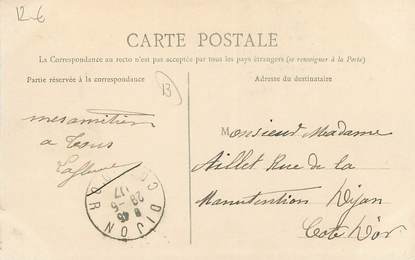 12-6
CARTE POSTALE
La Correspondance au recto n'est pas acceptée par tous les pays étrangers (se renseigner à la Poste)
Partie réservée à la correspondance
Adresse du destinataire
13
mes amitiés
a tous
Monsieur Madame
Aillet Rue de la
Manutention Dijon
Cote d'or
DIJON
COTE D'OR